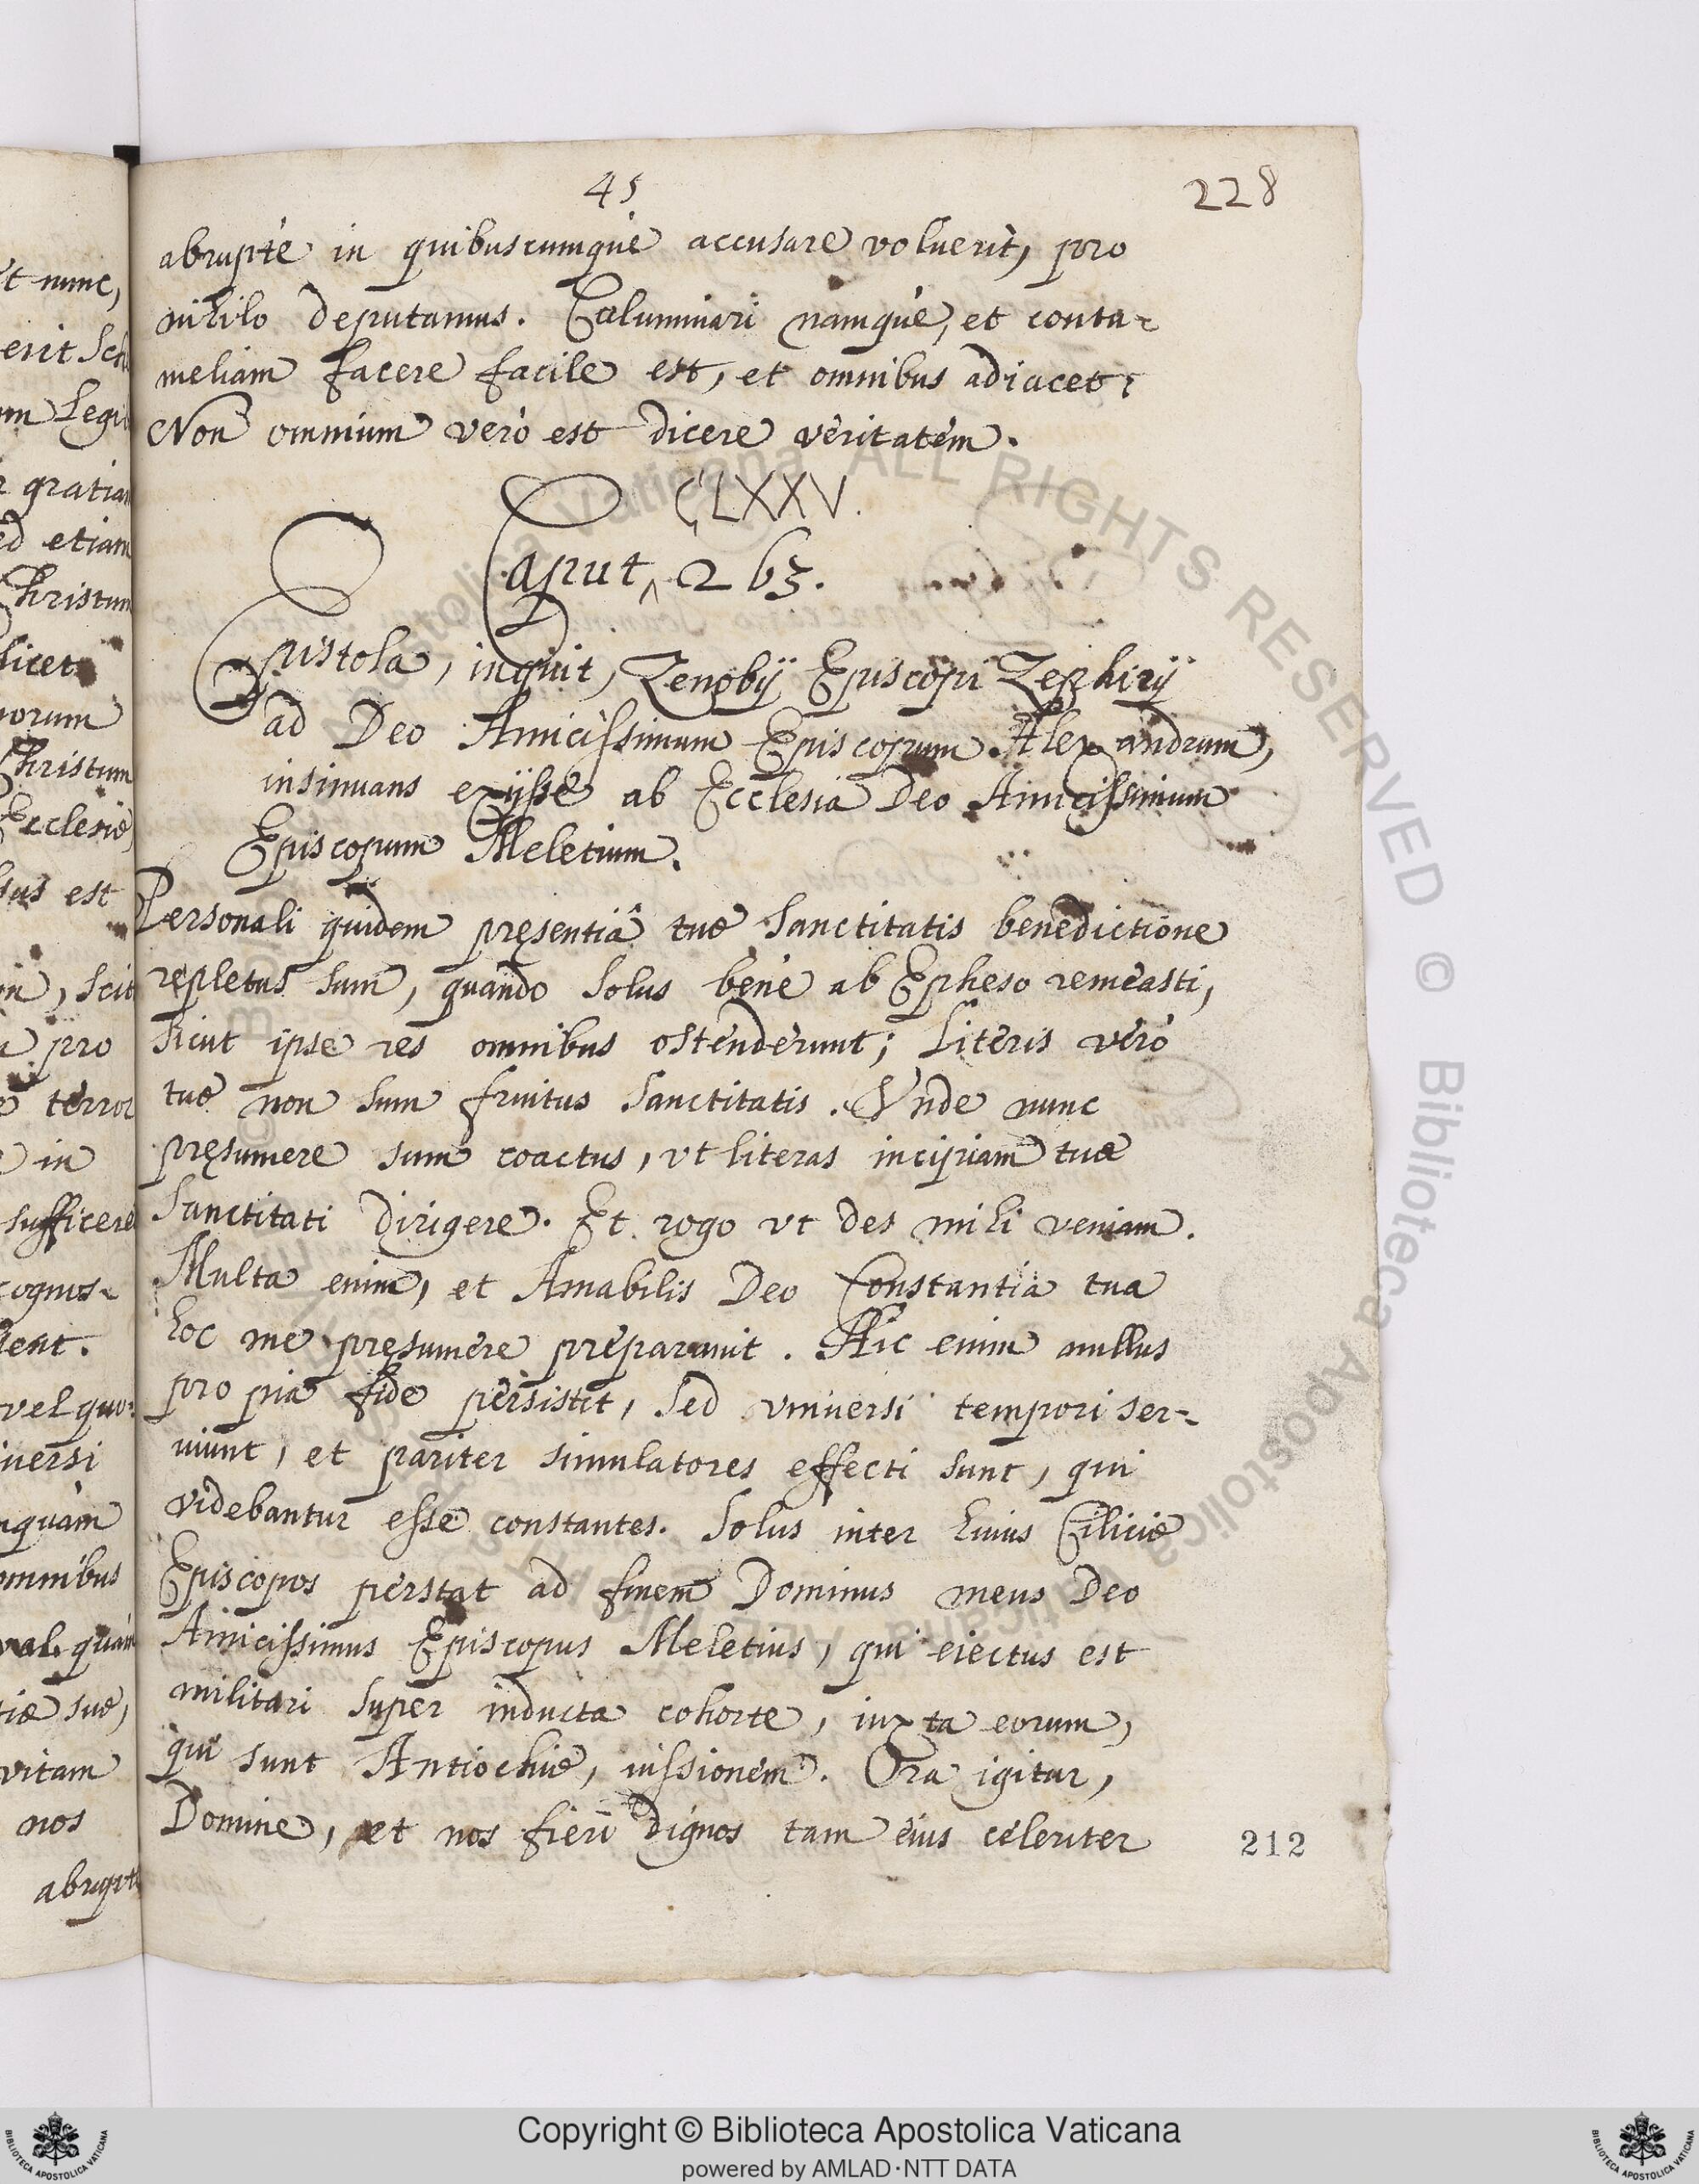 45
228
abruptè in quibuscumquè accusare voluerit, pro
nihilo deputamus. Calumniari namquè, et contu-
meliam facere facile est, et omnibus adiacet;
Non omnium verò est dicere veritatem.
CLXXV.
Caput 263.
Epistola, inquit, Zenobij Episcopi Zephirij
ad Deo Amicissimum Episcopum Alexandrum,
insinuans exijsse ab Ecclesia Deo Amicissimum
Episcopum Meletium.
Personali quidem pręsentiâ tuæ Sanctitatis benedictione
repletus sum, quando solus benè ab Epheso remeasti,
sicut ipse res omnibus ostenderunt; literis verò
tuæ non sum fruitus Sanctitatis. Vnde nunc
pręsumere sum coactus, vt literas incipiam tuæ
Sanctitati dirigere. Et rogo vt des mihi veniam.
Multa enim, et Amabilis Deo Constantia tua
hoc me pręsumere pręparauit. Hic enim nullus
pro pia fide persistit, sed vniuersi tempori ser-
uiunt, et pariter simulatores effecti sunt, qui
videbantur esse constantes. Solus inter huius Ciliciæ
Episcopos perstat ad finem Dominus meus Deo
Amicissimus Episcopus Meletius, qui eiectus est
militari super inducta cohorte, iuxta eorum,
qui sunt Antiochiæ, iussionem. Ora igitur,
Domine, et nos fieri dignos tam eius celeriter
212
et nunc,
gratiam
etiam
Christum
licet
Christum
Ecclesiæ
est
pro
terror
in
sufficere
cognos-
vel quo-
omnibus
suæ,
vitam
nos
abruptè
© Biblioteca Apostolica Vaticana ALL RIGHTS RESERVED
Copyright © Biblioteca Apostolica Vaticana
powered by AMLAD·NTT DATA
BIBLIOTECA APOSTOLICA VATICANA
BIBLIOTECA APOSTOLICA VATICANA